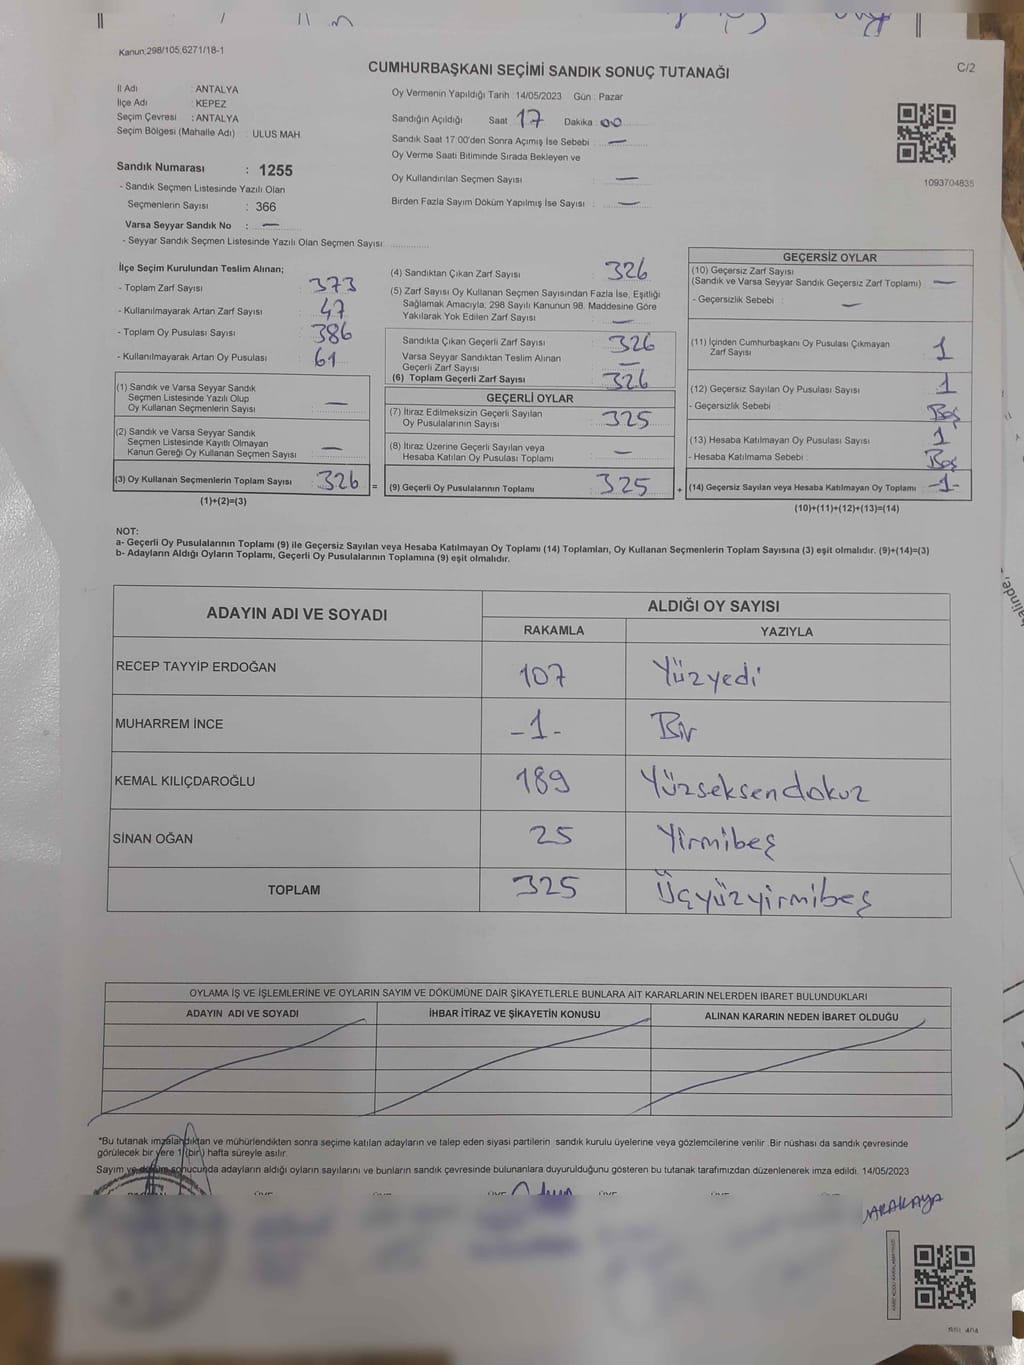 Kanun:298/105,6271/18-1
CUMHURBAŞKANI SEÇİMİ SANDIK SONUÇ TUTANAĞI
C/2
İl Adı : ANTALYA
İlçe Adı : KEPEZ
Seçim Çevresi : ANTALYA
Seçim Bölgesi (Mahalle Adı) : ULUS MAH.
Sandık Numarası : 1255
- Sandık Seçmen Listesinde Yazılı Olan
Seçmenlerin Sayısı : 366
Varsa Seyyar Sandık No : —
- Seyyar Sandık Seçmen Listesinde Yazılı Olan Seçmen Sayısı:
Oy Vermenin Yapıldığı Tarih :14/05/2023 Gün : Pazar
Sandığın Açıldığı Saat 17 Dakika : 00
Sandık Saat 17:00'den Sonra Açımış İse Sebebi : —
Oy Verme Saati Bitiminde Sırada Bekleyen ve
Oy Kullandırılan Seçmen Sayısı : —
Birden Fazla Sayım Döküm Yapılmış İse Sayısı : —
1093704835
İlçe Seçim Kurulundan Teslim Alınan;
- Toplam Zarf Sayısı : 373
- Kullanılmayarak Artan Zarf Sayısı : 47
- Toplam Oy Pusulası Sayısı : 386
- Kullanılmayarak Artan Oy Pusulası : 61
(1) Sandık ve Varsa Seyyar Sandık
Seçmen Listesinde Yazılı Olup
Oy Kullanan Seçmenlerin Sayısı : —
(2) Sandık ve Varsa Seyyar Sandık
Seçmen Listesinde Kayıtlı Olmayan
Kanun Gereği Oy Kullanan Seçmen Sayısı : —
(3) Oy Kullanan Seçmenlerin Toplam Sayısı : 326 =
(1)+(2)=(3)
(4) Sandıktan Çıkan Zarf Sayısı : 326
(5) Zarf Sayısı Oy Kullanan Seçmen Sayısından Fazla İse, Eşitliği
Sağlamak Amacıyla; 298 Sayılı Kanunun 98. Maddesine Göre
Yakılarak Yok Edilen Zarf Sayısı : —
Sandıkta Çıkan Geçerli Zarf Sayısı : 326
Varsa Seyyar Sandıktan Teslim Alınan
Geçerli Zarf Sayısı : —
(6) Toplam Geçerli Zarf Sayısı : 326
GEÇERLİ OYLAR
(7) İtiraz Edilmeksizin Geçerli Sayılan
Oy Pusulalarının Sayısı : 325
(8) İtiraz Üzerine Geçerli Sayılan veya
Hesaba Katılan Oy Pusulası Toplamı : —
(9) Geçerli Oy Pusulalarının Toplamı : 325 +
GEÇERSİZ OYLAR
(10) Geçersiz Zarf Sayısı
(Sandık ve Varsa Seyyar Sandık Geçersiz Zarf Toplamı) : —
- Geçersizlik Sebebi : —
(11) İçinden Cumhurbaşkanı Oy Pusulası Çıkmayan
Zarf Sayısı : 1
(12) Geçersiz Sayılan Oy Pusulası Sayısı : 1
- Geçersizlik Sebebi : Boş
(13) Hesaba Katılmayan Oy Pusulası Sayısı : 1
- Hesaba Katılmama Sebebi : Boş
(14) Geçersiz Sayılan veya Hesaba Katılmayan Oy Toplamı : -1-
(10)+(11)+(12)+(13)=(14)
NOT:
a- Geçerli Oy Pusulalarının Toplamı (9) ile Geçersiz Sayılan veya Hesaba Katılmayan Oy Toplamı (14) Toplamları, Oy Kullanan Seçmenlerin Toplam Sayısına (3) eşit olmalıdır. (9)+(14)=(3)
b- Adayların Aldığı Oyların Toplamı, Geçerli Oy Pusulalarının Toplamına (9) eşit olmalıdır.
ADAYIN ADI VE SOYADI
ALDIĞI OY SAYISI
RAKAMLA YAZIYLA
RECEP TAYYİP ERDOĞAN 107 Yüzyedi
MUHARREM İNCE -1- Bir
KEMAL KILIÇDAROĞLU 189 Yüzseksendokuz
SİNAN OĞAN 25 Yirmibeş
TOPLAM 325 Üçyüzyirmibeş
OYLAMA İŞ VE İŞLEMLERİNE VE OYLARIN SAYIM VE DÖKÜMÜNE DAİR ŞİKAYETLERLE BUNLARA AİT KARARLARIN NELERDEN İBARET BULUNDUKLARI
ADAYIN ADI VE SOYADI İHBAR İTİRAZ VE ŞİKAYETİN KONUSU ALINAN KARARIN NEDEN İBARET OLDUĞU
*Bu tutanak imzalandıktan ve mühürlendikten sonra seçime katılan adayların ve talep eden siyasi partilerin sandık kurulu üyelerine veya gözlemcilerine verilir .Bir nüshası da sandık çevresinde
görülecek bir yere 1 (bir) hafta süreyle asılır.
Sayım ve döküm sonucunda adayların aldığı oyların sayılarını ve bunların sandık çevresinde bulunanlara duyurulduğunu gösteren bu tutanak tarafımızdan düzenlenerek imza edildi. 14/05/2023